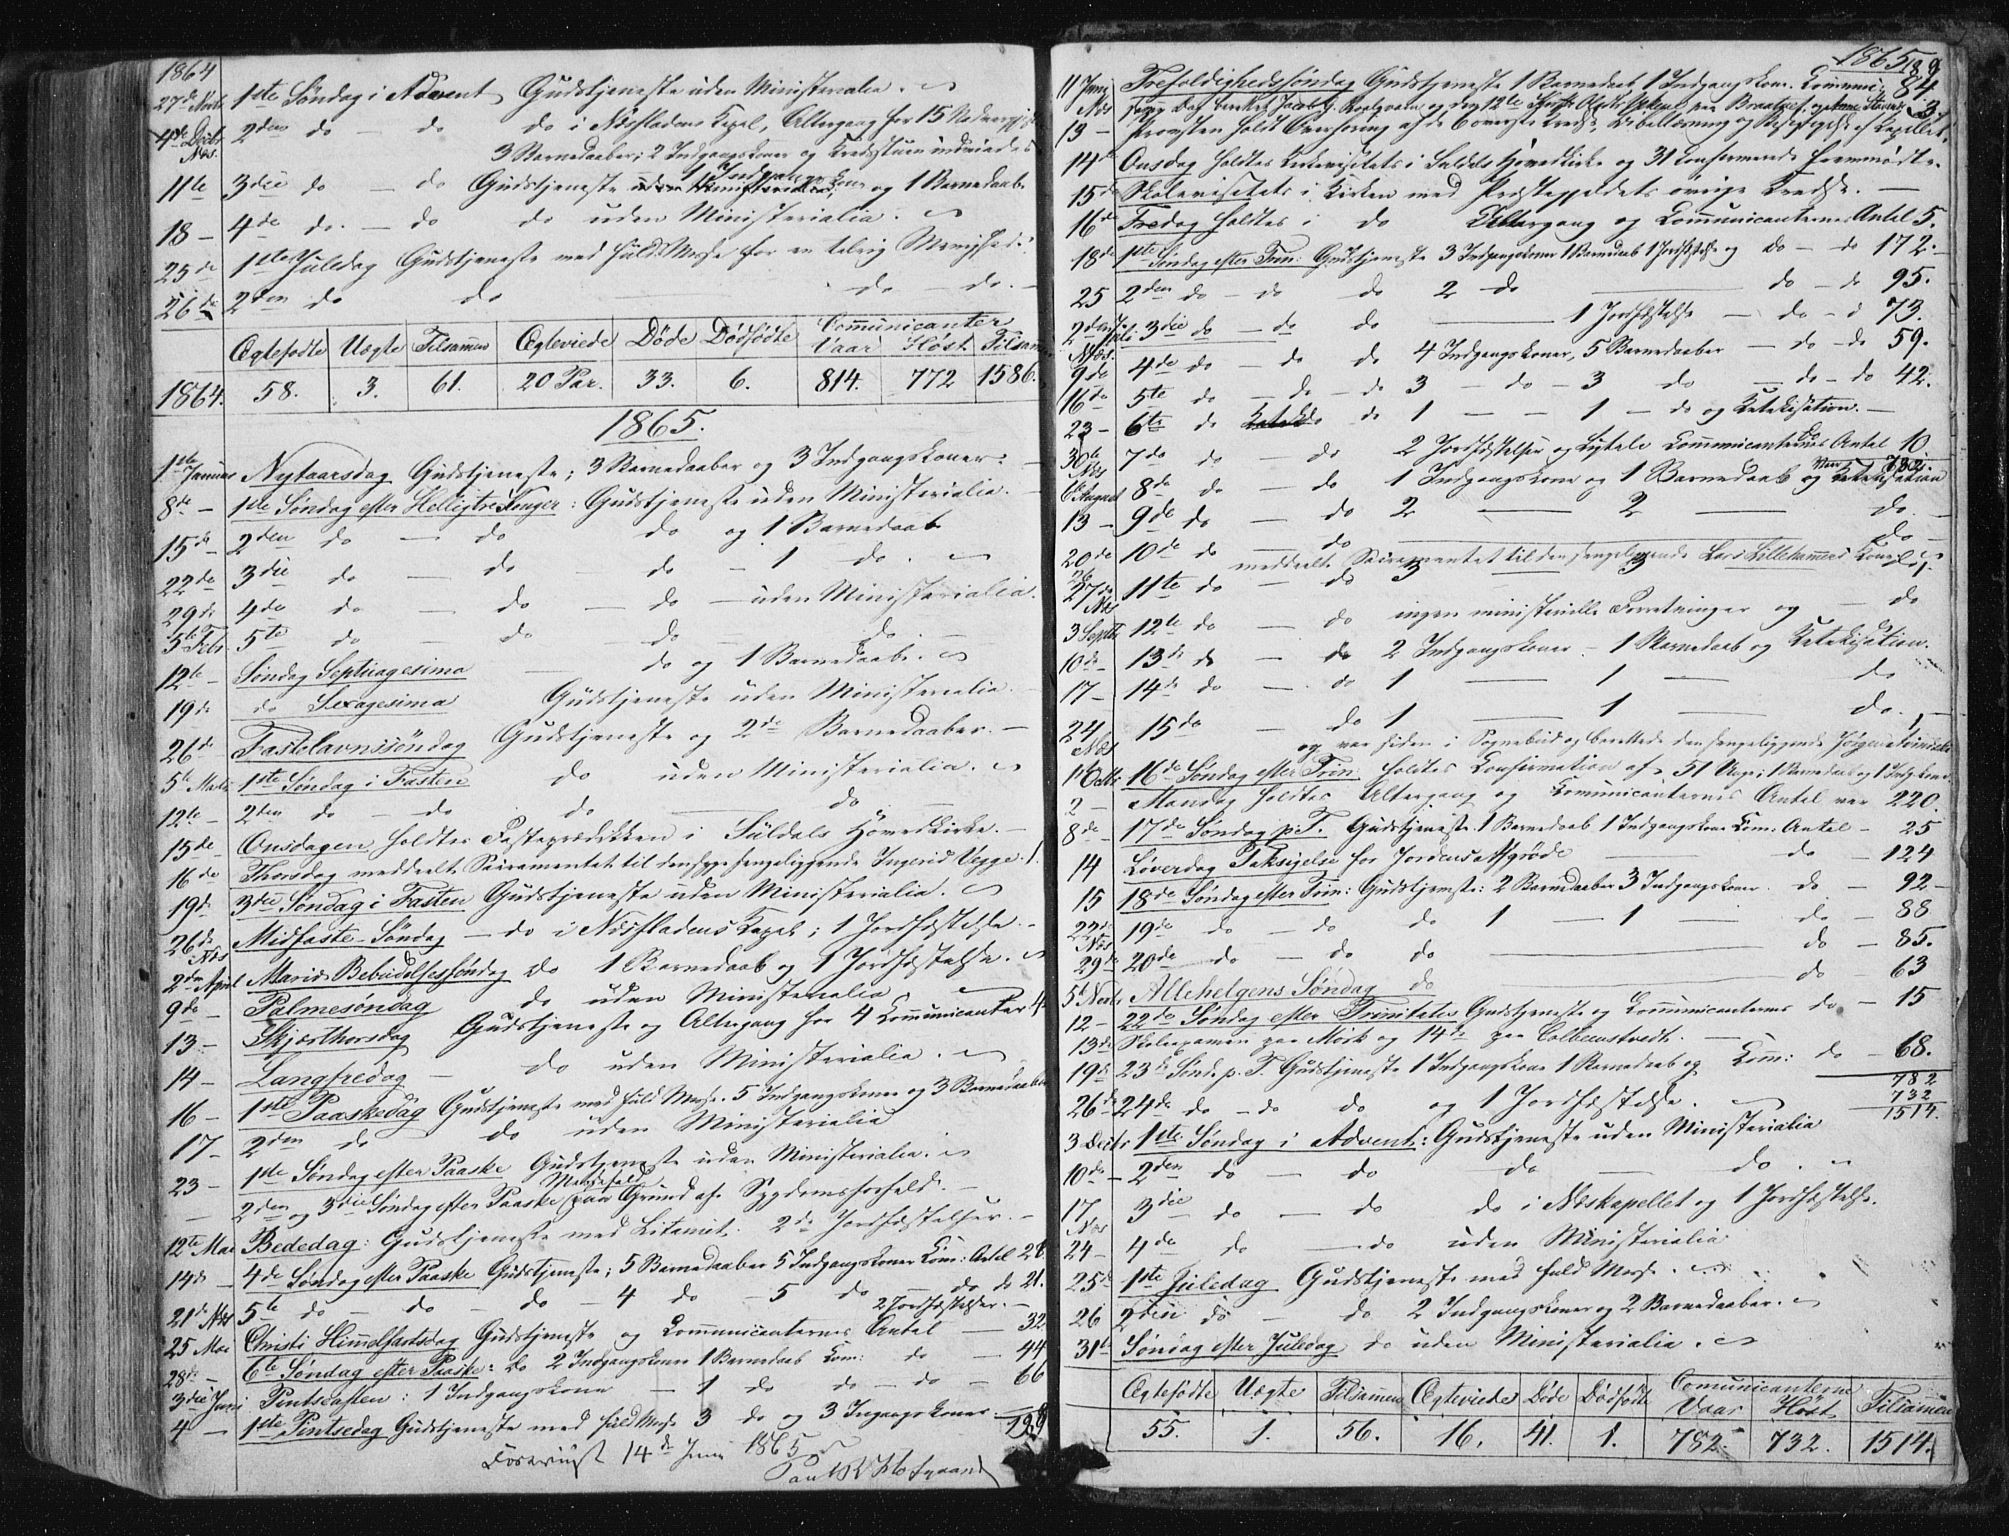 1864
27de Novb. 1ste Søndag i Advent Gudstjeneste uden Ministerialia.
4de Decbr. Næs. 2den do — do do i Næsfladens Kapel, Altergang for 15
3 Barnedaaber; 2 Indgangskoner og
11te 3die do — do Gudstjeneste 1 Indgangskone og 1 Barnedaab
18 — 4de do — do do uden Ministerialia.
25de 1ste Juledag Gudstjeneste med fuld Messe for en talrig
26de 2den do do do — do. —
Ægtefødte Uægte Tilsammen Ægteviede Døde Dødfødte Communicanter Vaar Høst Tilsam
1864. 58. 3. 61. 20 Par. 33. 6. 814. 772 1586.
1865.
1ste Januar Nytaarsdag Gudstjeneste; 3 Barnedaaber og 3 Indgangskoner. —
8de — 1ste Søndag efter Helligtre Konger: Gudstjeneste uden Ministerialia. —
15de 2den do — do do og 1 Barnedaab
22de 3die do — do — do — 1 do.
29de 4de do — do — do — uden Ministerialia.
5te Febr. 5te do — do do — do. —
12te Søndag Septuagesima — do og 1 Barnedaab.
19de do Sexagesima Gudstjeneste uden Ministerialia. —
26de Fastelavnssøndag Gudstjeneste og 2de Barnedaaber. —
5te Marts 1ste Søndag i Fasten do uden Ministerialia.
12te 2den do — do do — do —
15de Onsdagen holdtes Fasteprædikken i Suldals Hovedkirke. —
16de Thorsdag meddeelt Sacramentet til den syge sengeliggende Ingerid Vegge. 1.
19de 3die Søndag i Fasten Gudstjeneste uden Ministerialia.
26de Næs Midfaste-Søndag — do i Næsfladens Kapel; 1 Jordfæstelse. —
2den April Mariæ Bebudelsessøndag do 1 Barnedaab og 1 Jordfæstelse.
9de — Palmesøndag do uden Ministerialia
13 — Skjærthorsdag Gudstjeneste og Altergang for 4 Communicanter 4
14 — Langfredag — do uden Ministerialia.
16 — 1ste Paaskedag Gudstjeneste med fuld Messe. 5 Indgangskoner og 3 Barnedaaber
17 — 2den do do uden Ministerialia
23 — 1ste Søndag efter Paaske Gudstjeneste uden Ministerialia.
— 2den og 3die Søndag efter Paaske Messefald paa Grund af Sygdomsforfald. —
12te Mai Bededag: Gudstjeneste med Litaniet. 2de Jordfæstelser. —
14de — 4de Søndag efter Paaske Gudstjeneste; 5 Barnedaaber 5 Indgangskoner Com: Antl 28
21de Næs 5te do — do — do — 4 do — 5 do — do do 21.
2 Jordfæstelser. —
25 Mai Christi Himmelfartsdag Gudstjeneste og Communicanternes Antal — 32
28de — 6te Søndag efter Paaske: do 2 Indgangskoner 1 Barnedaab Com: do — 44
3die Juni Pintseaften: 1 Indgangskone — 1 do do — do — 66
4 — 1ste Pintsedag Gudstjeneste med fuld Messe 3 do og 3 Ingangskoner. —
Foreviist 14de Juni 1865
1865
11 Juni Næs Trefoldighedssøndag Gudstjeneste 1 Barnedaab 1 Indgangskone. Communi: 84
13 — Provsten holdt Overhøring af de 6 øverste Kredse,
14de Onsdag holdtes Kirkevisitats i Suldals Hovedkirke og 31 Confirmerede fremmødte.
15de Skolevisitats i Kirken med Præstegjeldets øvrige Kredse. —
16de Fredag holdtes i do Altergang og Communicanternes Antal 5.
18de 1ste Søndag efter Trin: Gudstjeneste 3 Indgangskoner 1 Barnedaab 1 Jordfæstelse og do — do 172.
25 2den do — do do 2 do — do — do 95.
2den Juli Næs. 3die do — do do — 1 Jordfæstelse — do — d 73.
9de 4de do — do do 4 Indgangskoner, 5 Barnedaaber — do — do 59.
16de 5te do — do — do 3 — do — 3 do — do — do 42.
23 — 6te do do 1 — — 1 — do og Katekisation. —
30te Næs 7de do — do 2 Jordfæstelser og Communicanternes Antal 10.
782.
6te August 8de do — do 1 Indgangskone og 1 Barnedaab og Katekisation
13 — 9de do — do 2 — 2 — do. —
20de 10de do — do — do —
meddeelt Sacramentet til den sengeliggende Lars Lillehammers Kone 1.
27de Næs 11te do — do 3 — 3 do
3 Septbr. 12te do — do ingen ministerielle Forretninger og — do
10de 13de do — do 2 Indgangskoner — 1 Barnedaab og Katekisation.
17 — 14de do — do 1 — 1 — do
24 Næs 15de — do 1 — 1 — do. —
og var siden i Sognebud og berettede den sengeliggende Jørgen 1
1ste Octbr. 16de Søndag efter Trin: holdtes Confirmation af 51 Unge; 1 Barnedaab og 1 Indg.kone.
2 — Mandag holdtes Altergang og Communicanternes Antal var 220.
8de 17de Søndag p.T. Gudstjeneste. 1 Barnedaab 1 Indgangskone Com: Antal — 25
14 Løverdag Taksigelse for Jordens Afgrøde — do — 124
15 18de Søndag efter Trin: Gudstjeneste: 2 Barnedaaber 3 Indgangskoner. do — 92 —
22de Næs 19de do — do do 1 — 1 — do — 88
29de 20de do — do do — do — 85.
5te Novbr. Allehelgens Søndag do — do — 63
12 — 22de Søndag efter Trinitatis Gudstjeneste og Communicanternes do — 15
13de Skoleexamen paa Mork og 14de paa Colbeenstvedt.
19de 23de Sønd. p. T. Gudstjeneste 1 Indgangskone 1 Barnedaab og Com: do — 68.
782
732
1514.
26de 24de do — do do og 1 Jordfæstelse.
3 Decbr. 1ste Søndag i Advent: Gudstjeneste uden Ministerialia
10de — 2den do — do do — do.
17 Næs 3die do — do do i Næskapellet og 1 Jordfæstelse.
24 — 4de do — do uden Ministerialia
25de 1ste Juledag Gudstjeneste med fuld Messe.
26 2den do — do 2 Indgangskoner og 2 Barnedaaber.
31te Søndag efter Juledag do uden Ministerialia.
Ægtefødte Uægte Tilsamen Ægteviede Døde Dødfødte Comunicanterne Vaar Høst Tilsamen
55. 1. 56. 16. 41. 1. 782. 732. 1514.